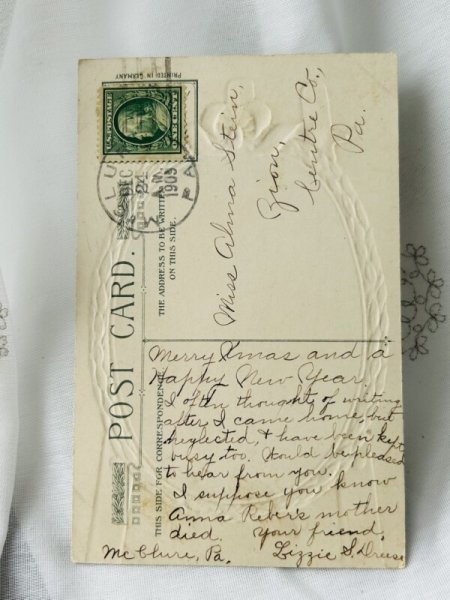 PRINTED IN GERMANY
U.S. POSTAGE
ONE CENT
DEC
24
1909
PA
POST CARD.
THE ADDRESS TO BE WRITTEN
ON THIS SIDE.
THIS SIDE FOR CORRESPONDENCE
Miss Alma Stein,
Zion,
Centre Co.,
Pa.
Merry Xmas and a
Happy New Year.
I often thought of writing
after I came home, but
neglected, + have been kept
busy too. Would be pleased
to hear from you.
I suppose you know
Anna Reber's mother
died. Your friend,
McClure, Pa. Lizzie S. Dreese